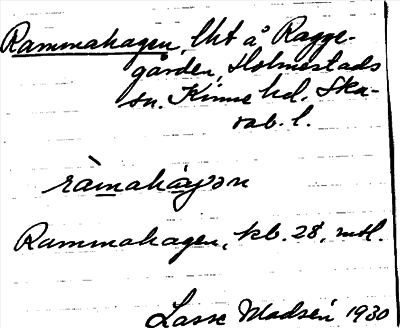 Rammahagen, lht å Ragge-
gården, Holmestads
sn. Kinne hd. Ska-
rab. l.
ràmahàgən
Rammahagen, kb. 28, mtl.
Lasse Madsén 1930